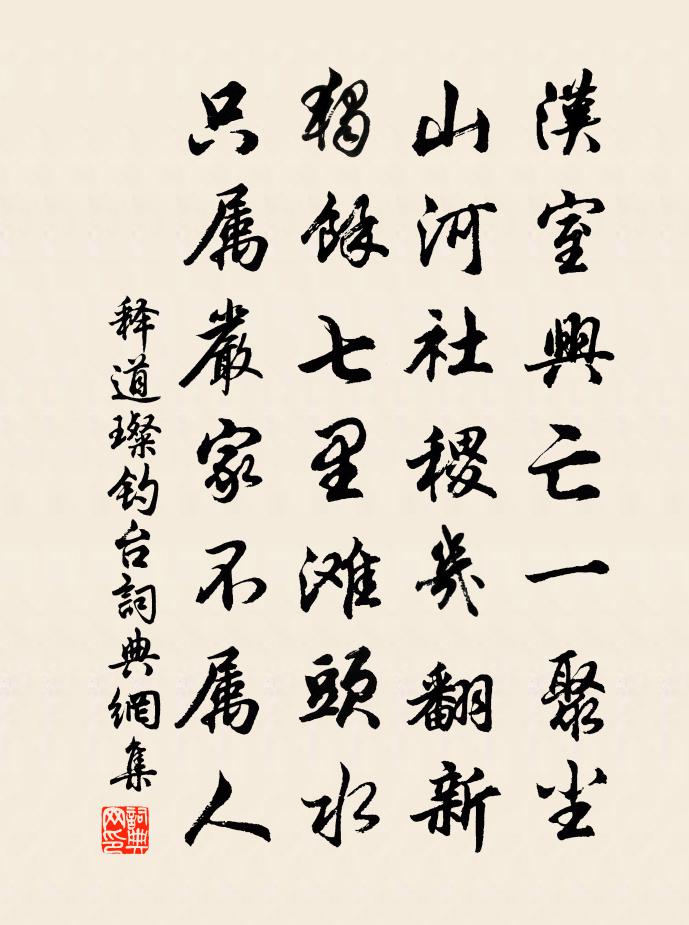 漢室興亡一聚尘
山河社稷幾翻新
獨餘七里滩頭水
只属嚴家不属人
释道璨钓台詞典網集
詞典网印